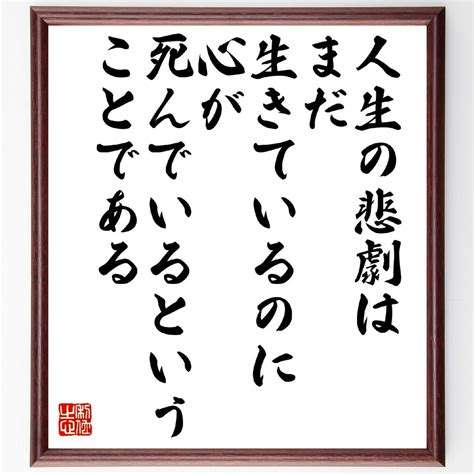 人生の悲劇は
まだ
生きているのに
心が
死んでいるという
ことである